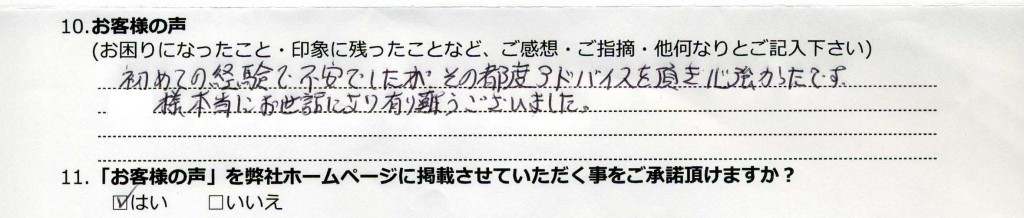 10.お客様の声
(お困りになったこと・印象に残ったことなど、ご感想・ご指摘・他何なりとご記入下さい)
初めての経験で不安でしたが、その都度アドバイスを頂き心強かったです。
様本当にお世話になり有り難うございました。
11.「お客様の声」を弊社ホームページに掲載させていただく事をご承諾頂けますか？
☑はい □いいえ